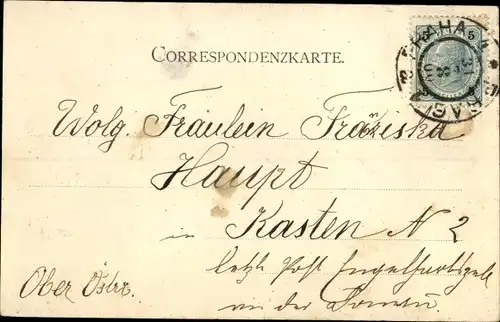 5 5
PRAHA
PRAG
CORRESPONDENZKARTE.
Wolg. Fräulein Fräziska
Haupt
in Kasten N 2
letzte Post Engelhartszell
an der Donau.
Ober Östrr.